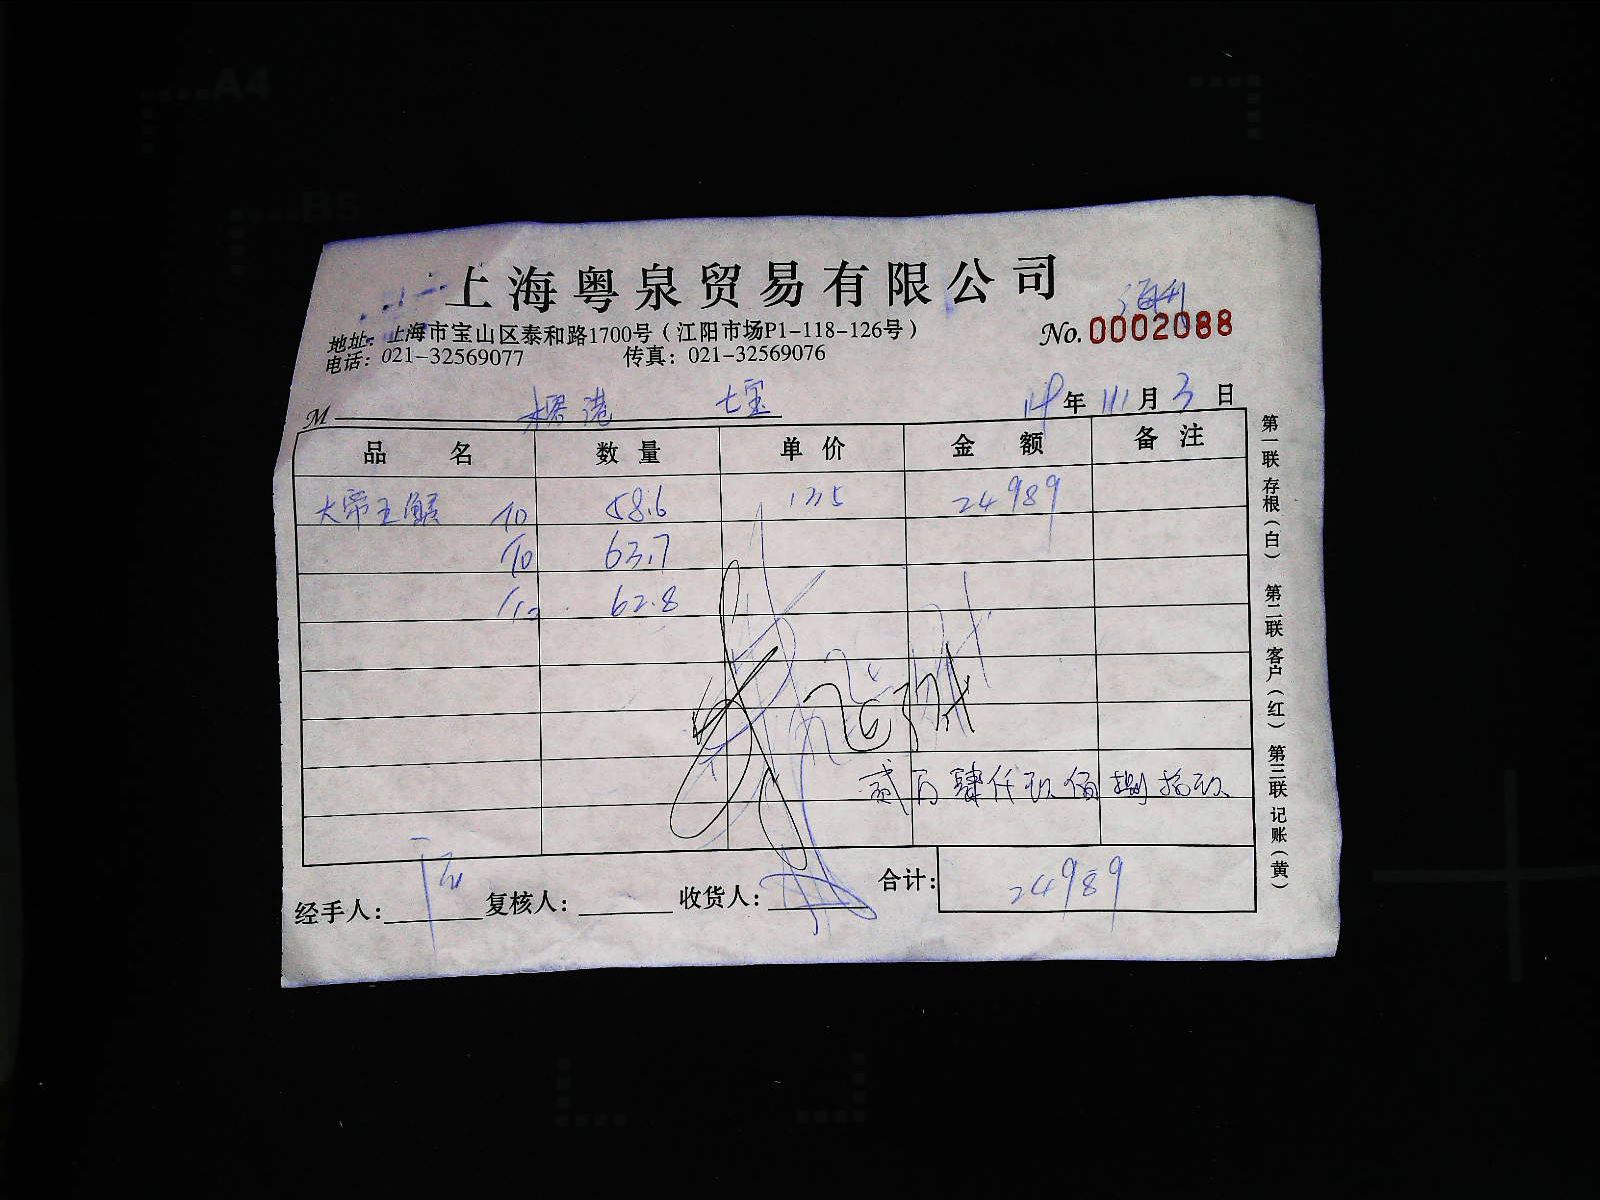 上海粤泉贸易有限公司
地址：上海市宝山区泰和路1700号（江阳市场P1-118-126号）
No. 0002088
电话：021-32569077 传真：021-32569076
M 七宝 年 月 3 日
品名 数量 单价 金额 备注
大帝王 10 58.6 135 24989
10 63.7
10 62.8
贰万肆仟玖佰捌拾玖
经手人： 复核人： 收货人： 合计：24989
第一联 存根（白） 第二联 客户（红） 第三联 记账（黄）
A4
B5